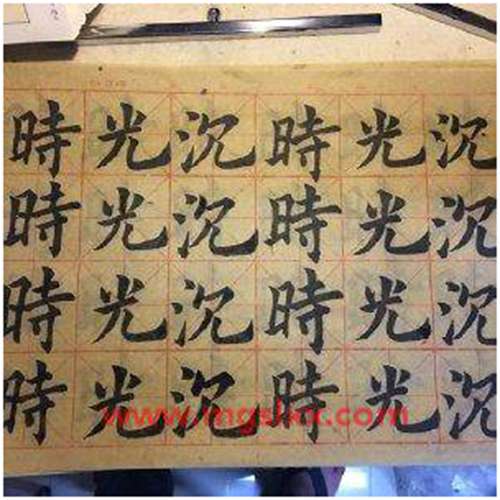 時光沉時光沉
時光沉時光沉
時光沉時光沉
時光沉時光沉